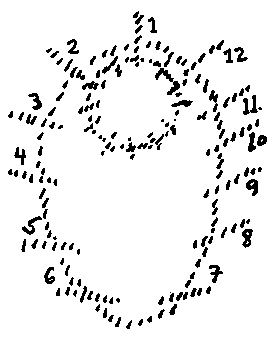 1
2
12
3
11
10
4
9
5
8
6
7